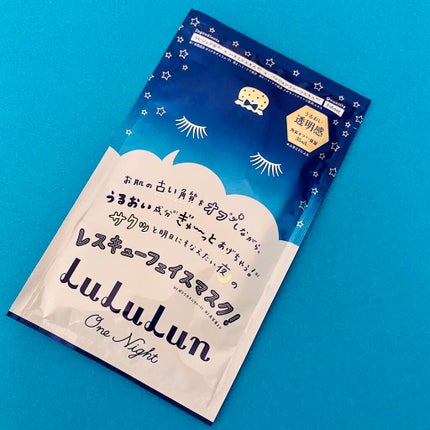 うるおい
透明感
お肌の古い角質をオフしながら、
うるおい成分ぎゅ〜っとあげちゃう!
サクッと明日にそなえたい夜の
レスキューフェイスマスク!
LuLuLun
One Night